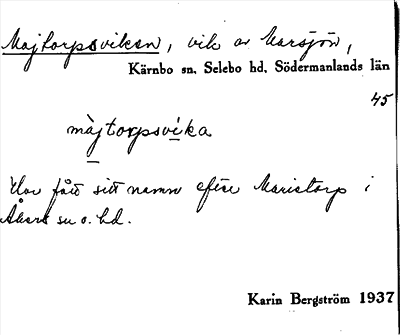 Majtorpsviken, vik av Marsjön,
Kärnbo sn, Selebo hd, Södermanlands län
45
màjtorpsvika
Har fått sitt namn efter Maristorp i
Åkers sn o. hd.
Karin Bergström 1937